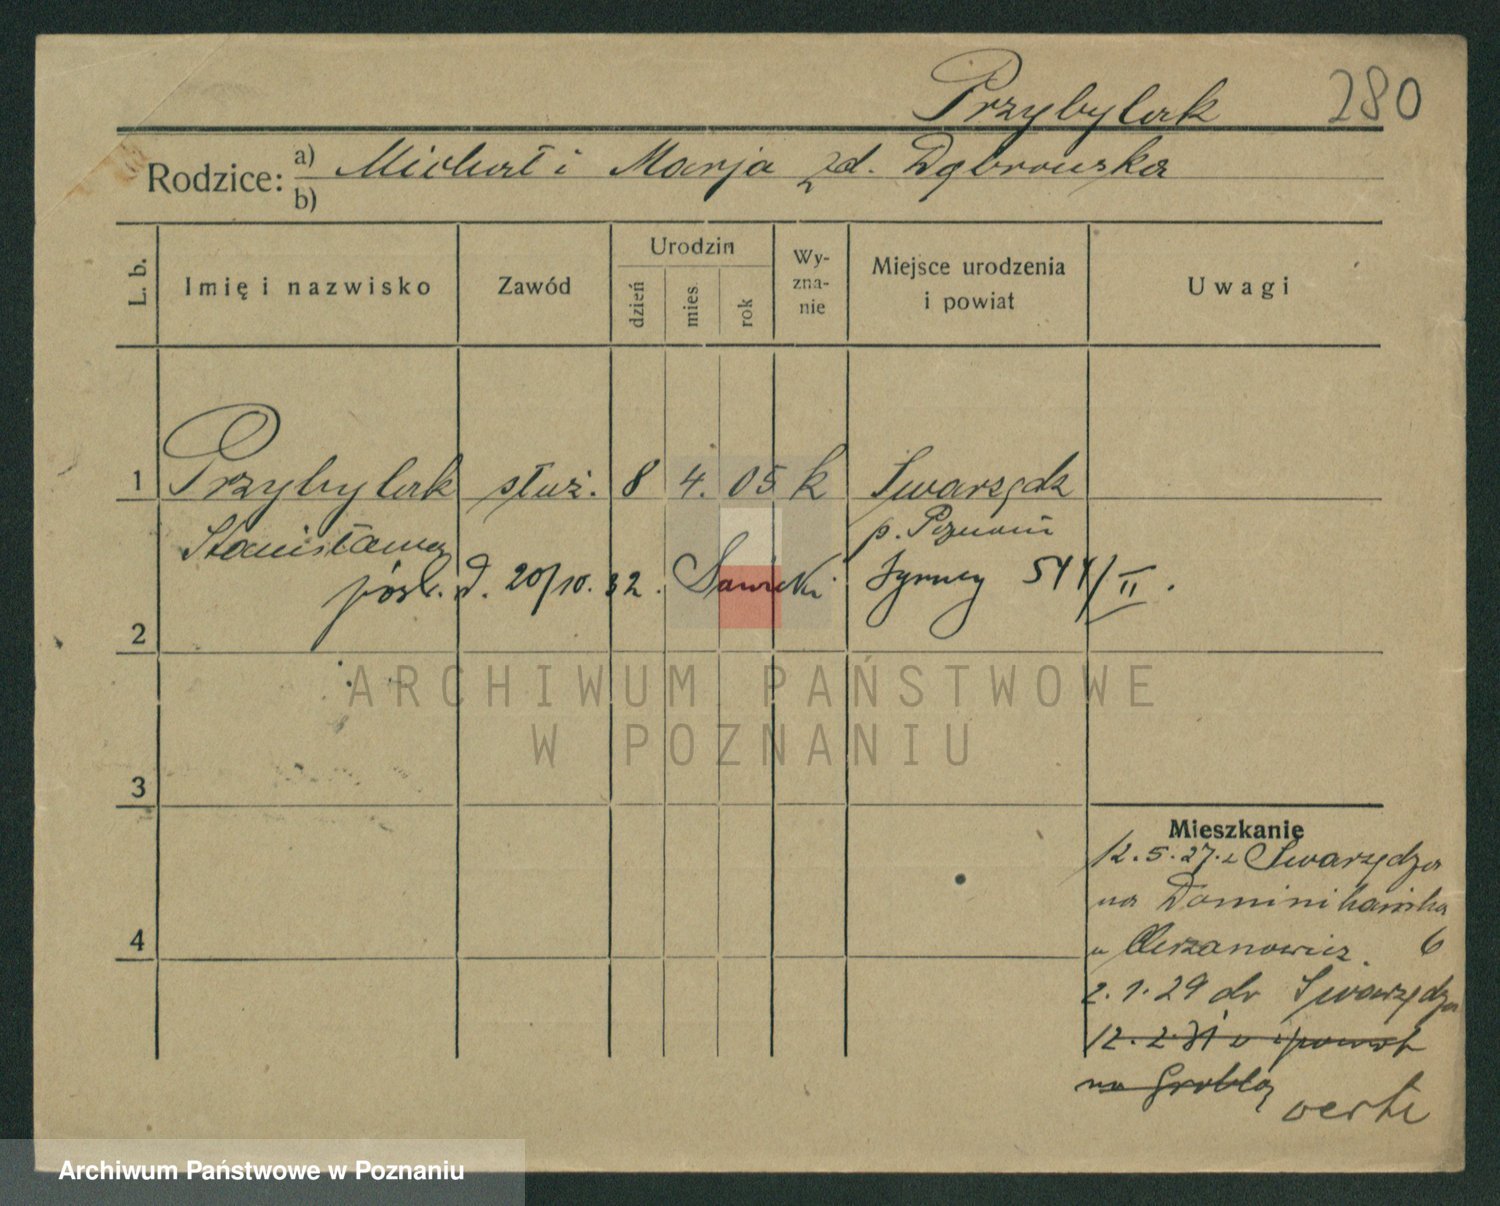 Przybylak 280
Rodzice: a) Michał i Marja zd. Dąbrowska
b)
L. b. Imię i nazwisko Zawód Urodzin dzień mies. rok Wyznanie Miejsce urodzenia i powiat Uwagi
1 Przybylak służ. 8 4. 05 k Swarzędz
Stanisława p. Poznań
pośl. d. 20/10. 32. Sawicki 544/II.
2
ARCHIWUM PAŃSTWOWE
W POZNANIU
3
Mieszkanie
12. 5. 27. z Swarzędza
na Dominikańska
4
u 6
2. 1. 29 do Swarzędza
12. 2. 31 z powrot
na Groblą
verte
Archiwum Państwowe w Poznaniu